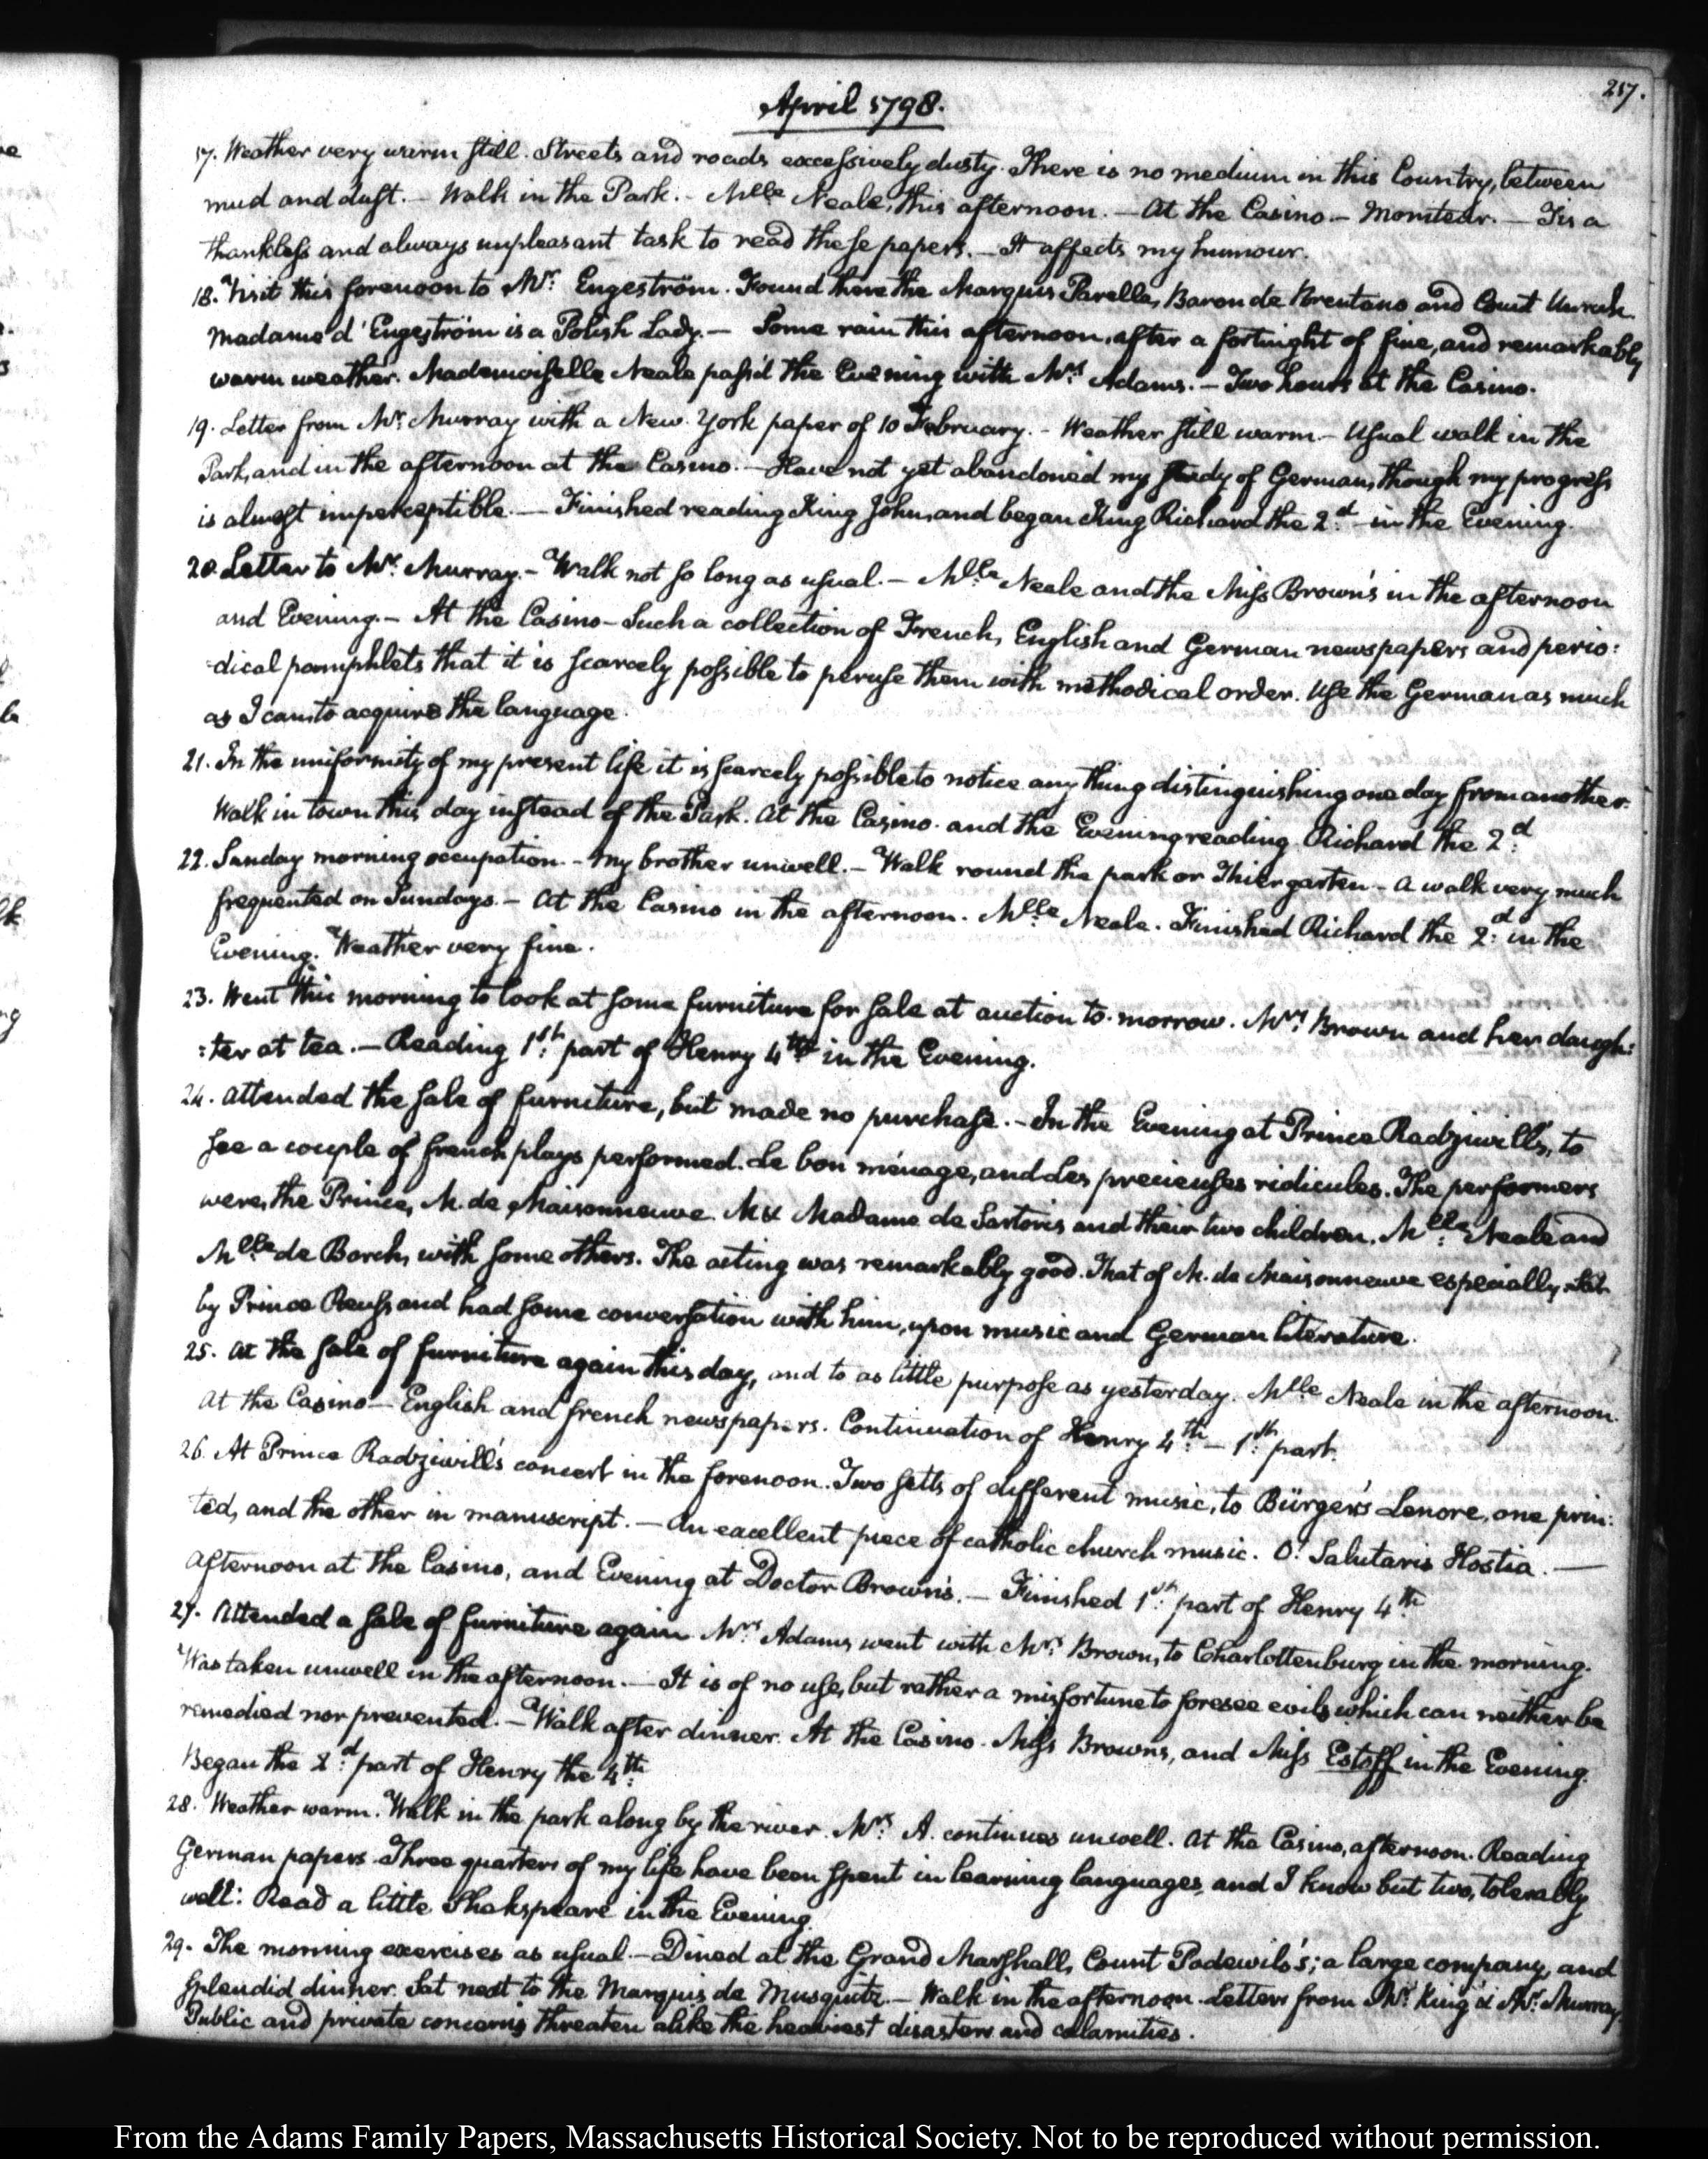 217.
April 1798.
17. Weather very warm still. Streets and roads excessively dusty. There is no medium in this Country, between
mud and dust. — Walk in the Park. — Mlle Neale, this afternoon. — At the Casino — Moniteur. — Tis a
thankless and always unpleasant task to read these papers. — It affects my humour.
18. Visit this forenoon to Mr. Engeström. Found there the Marquis Parella, Baron de Brentano and Count Unruh.
Madame d'Engeström is a Polish Lady. — Some rain this afternoon, after a fortnight of fine, and remarkably
warm weather. Mademoiselle Neale pass'd the Evening with Mrs. Adams. — Two hours at the Casino.
19. Letter from Mr. Murray with a New York paper of 10 February. — Weather still warm — Usual walk in the
Park, and in the afternoon at the Casino. — Have not yet abandoned my study of German, though my progress
is almost imperceptible. — Finished reading King John, and began King Richard the 2.d in the Evening.
20. Letter to Mr. Murray. — Walk not so long as usual. — Mlle Neale and the Miss Brown's in the afternoon
and Evening. — At the Casino — Such a collection of French, English and German newspapers and perio:
:dical pamphlets that it is scarcely possible to peruse them with methodical order. Use the German as much
as I can to acquire the language.
21. In the uniformity of my present life it is scarcely possible to notice any thing distinguishing one day from another.
Walk in town this day instead of the Park. At the Casino. and the Evening reading Richard the 2.d
22. Sunday morning occupation. — My brother unwell. — Walk round the park or Thiergarten — A walk very much
frequented on Sundays. — At the Casino in the afternoon. Mlle Neale. Finished Richard the 2.d in the
Evening. Weather very fine.
23. Went this morning to look at some furniture for sale at auction to-morrow. Mrs. Brown and her daugh:
:ter at tea. — Reading 1st part of Henry 4th in the Evening.
24. Attended the sale of furniture, but made no purchase. — In the Evening at Prince Radziwill's, to
see a couple of french plays performed. Le bon ménage, and Les precieuses ridicules. The performers
were, the Prince, M. de Maisonneuve. M & Madame de Sartoris and their two children. Mlle Neale and
Mlle de Borch, with some others. The acting was remarkably good. That of M. de Maisonneuve especially. Sat
by Prince Reuss and had some conversation with him, upon music and German literature.
25. At the sale of furniture again this day, and to as little purpose as yesterday. Mlle Neale in the afternoon.
At the Casino — English and french newspapers. Continuation of Henry 4th — 1st part.
26. At Prince Radziwill's concert in the forenoon. Two setts of different music, to Bürger's Lenore, one prin:
ted, and the other in manuscript. — An excellent piece of catholic church music. O! Salutaris Hostia. —
Afternoon at the Casino, and Evening at Doctor Brown's. — Finished 1st part of Henry 4th
27. Attended a sale of furniture again. Mrs. Adams went with Mrs. Brown, to Charlottenburg in the morning.
Was taken unwell in the afternoon. — It is of no use, but rather a misfortune to foresee evils which can neither be
remedied nor prevented. — Walk after dinner. At the Casino. Miss Browns, and Miss Estoff in the Evening.
Began the 2.d part of Henry the 4th.
28. Weather warm. Walk in the park along by the river. Mrs. A. continues unwell. At the Casino, afternoon. Reading
German papers. Three quarters of my life have been spent in learning languages, and I know but two, tolerably
well: Read a little Shakspeare in the Evening.
29. The morning exercises as usual. — Dined at the Grand Marshall, Count Podewils's; a large company, and
splendid dinner. Sat next to the Marquis de Musquitz. — Walk in the afternoon. Letters from Mr. King & Mr. Murray.
Public and private concerns threaten alike the heaviest disasters and calamities.
From the Adams Family Papers, Massachusetts Historical Society. Not to be reproduced without permission.